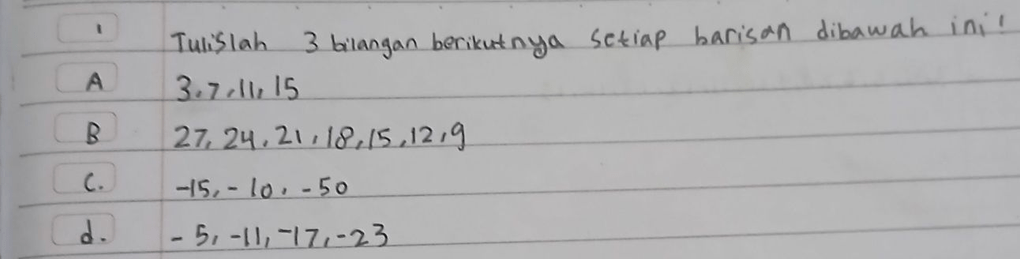 1 Tulislah 3 bilangan berikutnya setiap barisan dibawah ini!
A 3,7,11,15
B 27,24,21,18,15,12,9
C. -15,-10,-50
d. -5,-11,-17,-23